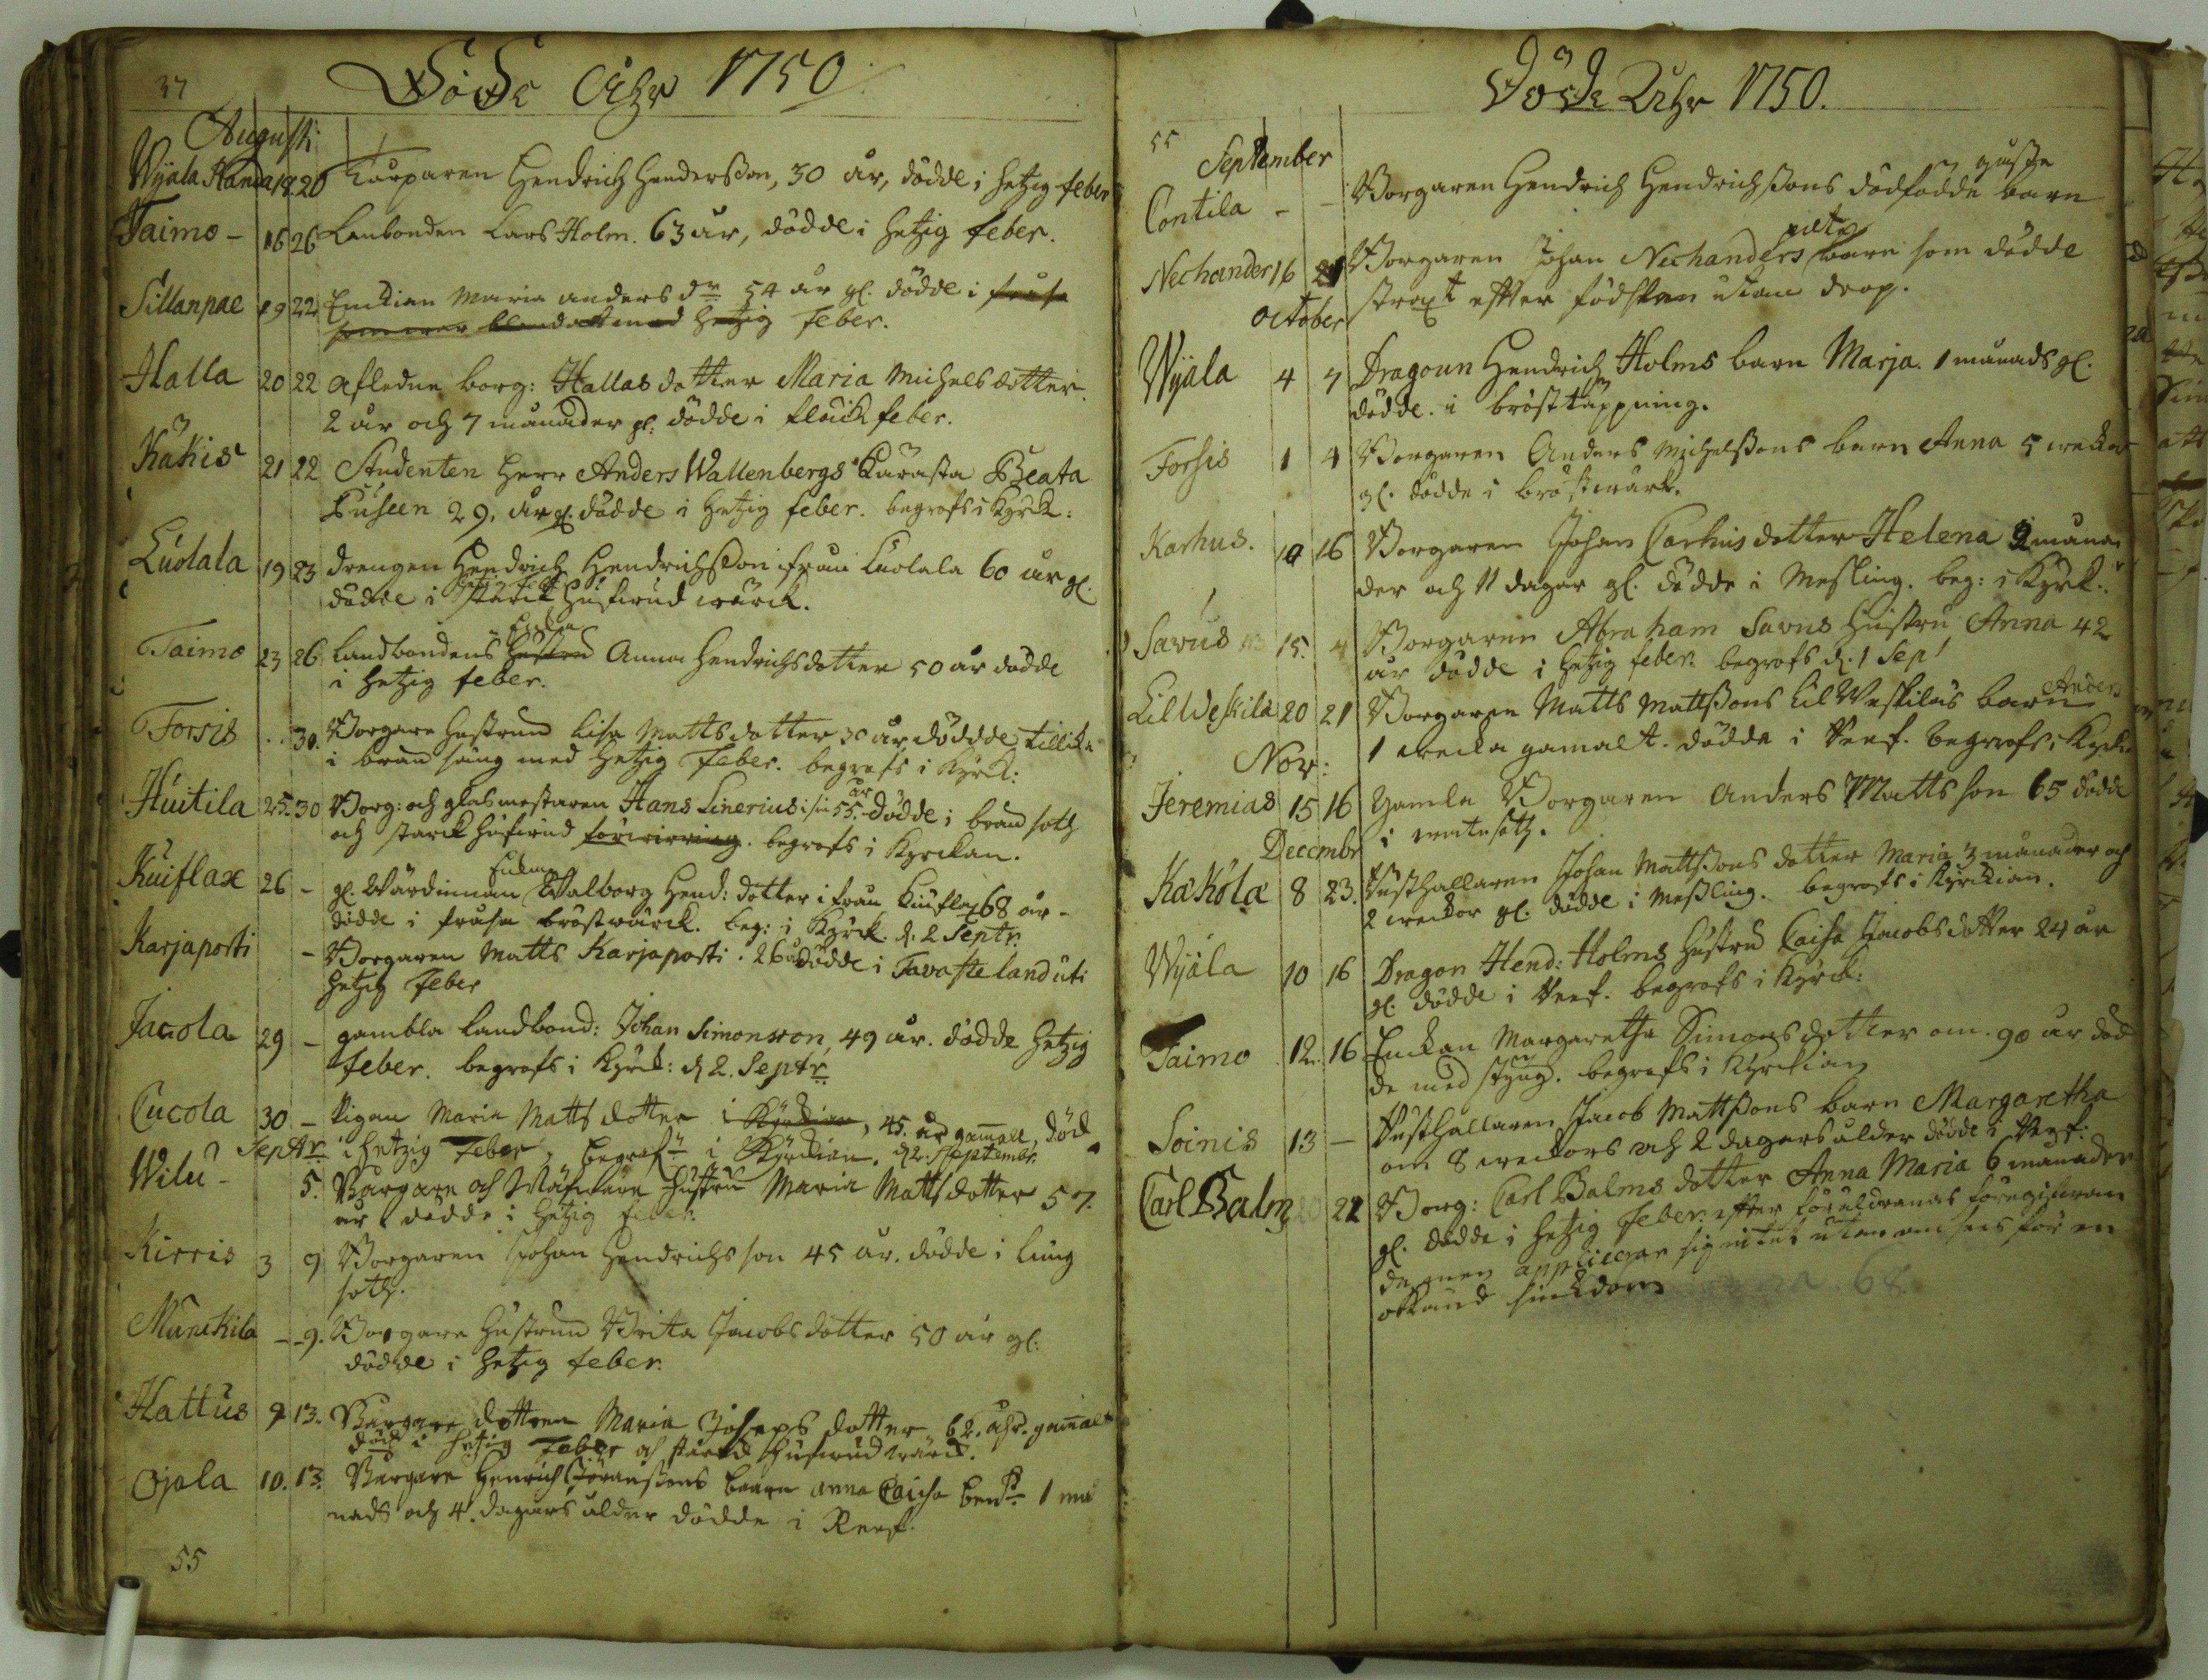 37
Döde Åhr 1750
Augusti
Wijala Handa 18 20 Torparen Hendrich Hendersson, 30 år, dödde i hetzig feber
Taimo - 16 26 Lanbonden Lars Holm. 63 år, dödde i hetzig feber.
Sillanpae 19 22 Enckian Maria Anders dr 54 år gl. dödde i
hetzig feber.
Halla 20 22 afledne borg: Hallas dotter Maria Michels dotter
2 år och 7 månader gl: dödde i fläck feber.
Käkis 21 22 Studenten Herr Anders Wallenbergs Kärasta Beata
29. år gl. dödde i hetzig feber. begrofs i Kyrck:
Luolala 19 23 drengen Hendrich Hendrichsson från Luolala 60 år gl.
dödde i starck hufwud wärck.
Enka
Taimo 23 26 Landbondens Hustru Anna Hendrichsdotter 50 år dödde
i hetzig feber.
Forsis . . 30. Borgare hustrun Lisa Matts dotter 30 år dödde tillika
i brand med hetzig feber. begrofs i Kyrck:
Huitila 25. 30 Borg: och glasmestaren Hans Linerius i sin 55. år dödde i brand soth
och starck hufwud . begrofs i Kyrckan.
Kuiflax 26 - gl. Wärdinnan Walborg Hend: dotter ifrån Kuiflax 68 år -
dödde i bröstwärck. beg: i Kyrck. d. 2 Septr.
Karjaporti - Borgaren Matts Karjaporti. 26 år dödde i Tavasteland uti
hetzig feber
Jacola 29 - gambla Landbond: Johan Simonsson, 49 år. dödde hetzig
feber. begrofs i Kyrck: d 2. Septr
Cucola 30 - Pigan Maria Matts dotter i Kyrckian, 45. år gamall, död
Septr i hetzig Feber, begrofs i Kyrckian. d 2. Septembr.
Wilu - 5. Borgare och Hustru Maria Matts dotter 57.
år dödde i hetzig feber.
Kirris 3 9 Borgaren Johan Hendrichs son 45 år. dödde i lung
soth.
Munckila - - 9. Borgare hustrun Brita Jacobs dotter 50 år gl:
dödde i hetzig feber.
Hattus 9 13. Borgare dottren Maria Joseps dotter 62. åhr. gamal
död i hetzig Feber och starck hufwud wärck.
Ojala 10. 13. Borgare Henrich Göranssons barn anna Caisa 1 må
nads och 4. dagars ålder dödde i Reef.
55
Döde Åhr 1750.
55
September
Contila - - Borgaren Hendrich Hendrichssons dödfödde barn
Nechander 16 21 Borgaren Johan Nechanders barn som dödde
straxt efter födslen utan dop.
October
Wijala 4 7 Dragoun Hendrich Holms barn Marja. 1 månads gl.
dödde. i brösttäppning.
Forsis 1 4 Borgaren Anders Michelssons barn Anna 5 weckor
gl. dödde i bröstwärk.
Karhus. 10 16 Borgaren Johan Carhus dotter Helena 2 måna
der och 11 dagar gl. dödde i Mesling. beg: i Kyrk:
Savus 15. 4 Borgaren Abraham Savus hustru Anna 42
år dödde i hetzig feber. begrofs d. 1 Sep
Lill Weskila 20 21 Borgaren Matts Mattssons Lil Weskilas barn Anders
1 wecka gamalt. dödde i Reef. begrofs i Kyrk
Nov:
Jeremias 15 16 Gamla Borgaren Anders Matts son 65 dödde
i soth.
Decembr
Kaköla 8 23. Rusthallaren Johan Mattssons dotter Maria 3 månader och
2 weckor gl. dödde i Messling. begrofs i Kyrckian.
Wijala 10 16 Dragon Hend: Holms hustru Caisa Jacobs dotter 24 år
gl. dödde i Reef. begrofs i Kyrck:
Taimo 12. 16 Enckan Margaretha Simons dotter om. 90 år död
de med styng. begrofs i Kyrckian
Soinis 13 - Rusthallaren Jacob Mattssons barn Margaretha
om 8 weckors och 2 dagars ålder dödde i Reef.
Carl Balm 20 22 Borg: Carl Balms dotter Anna Maria 6 månader
gl. dödde i hetzig feber. efter föräldranas föregifwan
de, men applicerar sig intet utan anses för en
okänd siuckdom